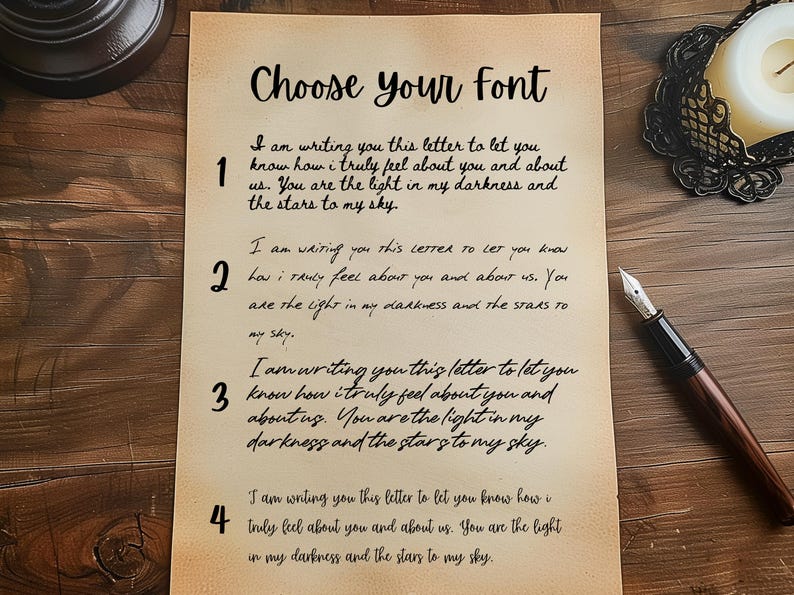 Choose Your Font
1
I am writing you this letter to let you
know how i truly feel about you and about
us. You are the light in my darkness and
the stars to my sky.
2
I am writing you this letter to let you know
how i truly feel about you and about us. You
are the light in my darkness and the stars to
my sky.
3
I am writing you this letter to let you
know how i truly feel about you and
about us. You are the light in my
darkness and the stars to my sky.
4
I am writing you this letter to let you know how i
truly feel about you and about us. You are the light
in my darkness and the stars to my sky.